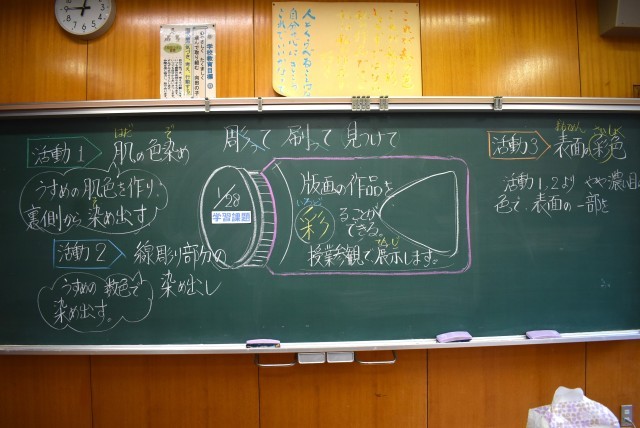 学校教育目標
人とくらべることなく
活動1
はだ
ぞ
肌の色染め
うすめの肌色を作り、
裏側から染め出す。
活動2
線彫り部分の
染め出し
うすめの 数色で
染め出す。
彫って 刷って 見つけて
1/28
学習課題
版画の作品を
いろど
彩ることが
できる。
てんじ
授業参観で展示します。
活動3
表面の彩色
活動1,2より やや濃い目
色で、表面の一部を